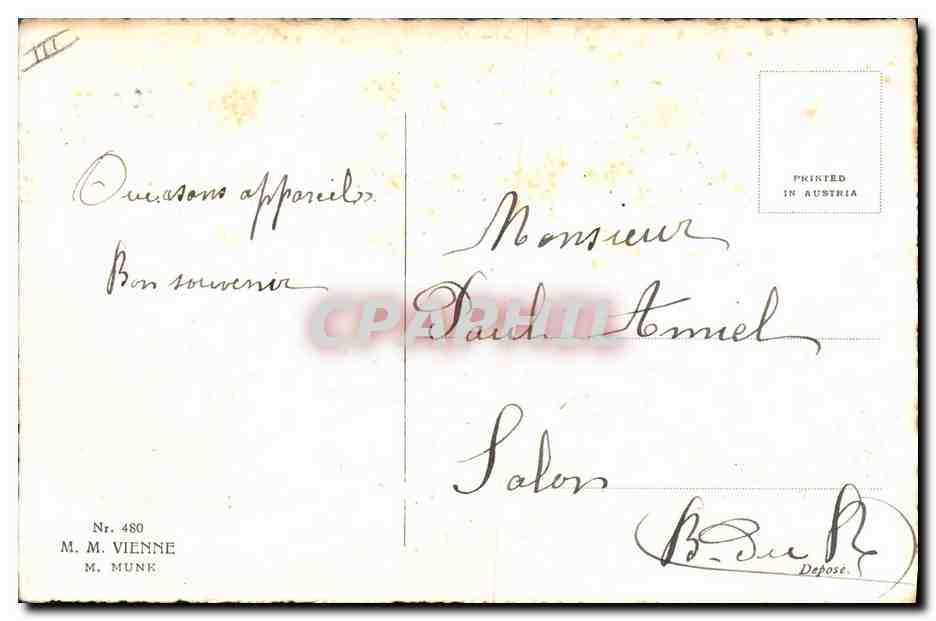 III
appareils
Bon souvenir
Nr. 480
M. M. VIENNE
M. MUNK
PRINTED
IN AUSTRIA
Monsieur
Paul Amiel
Salon
B. du R
Déposé.
CPAPHIL